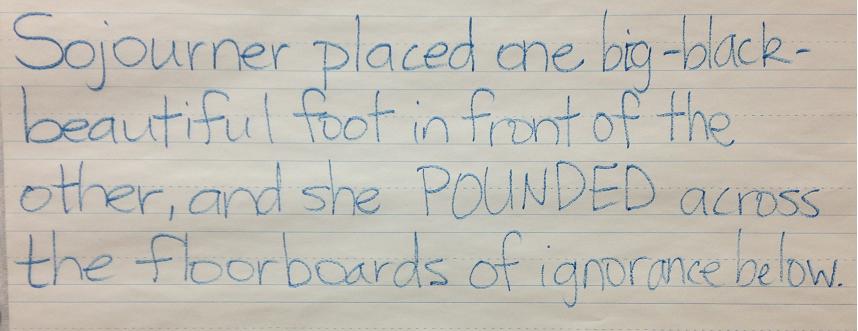 Sojourner placed one big-black-
beautiful foot in front of the
other, and she POUNDED across
the floorboards of ignorance below.